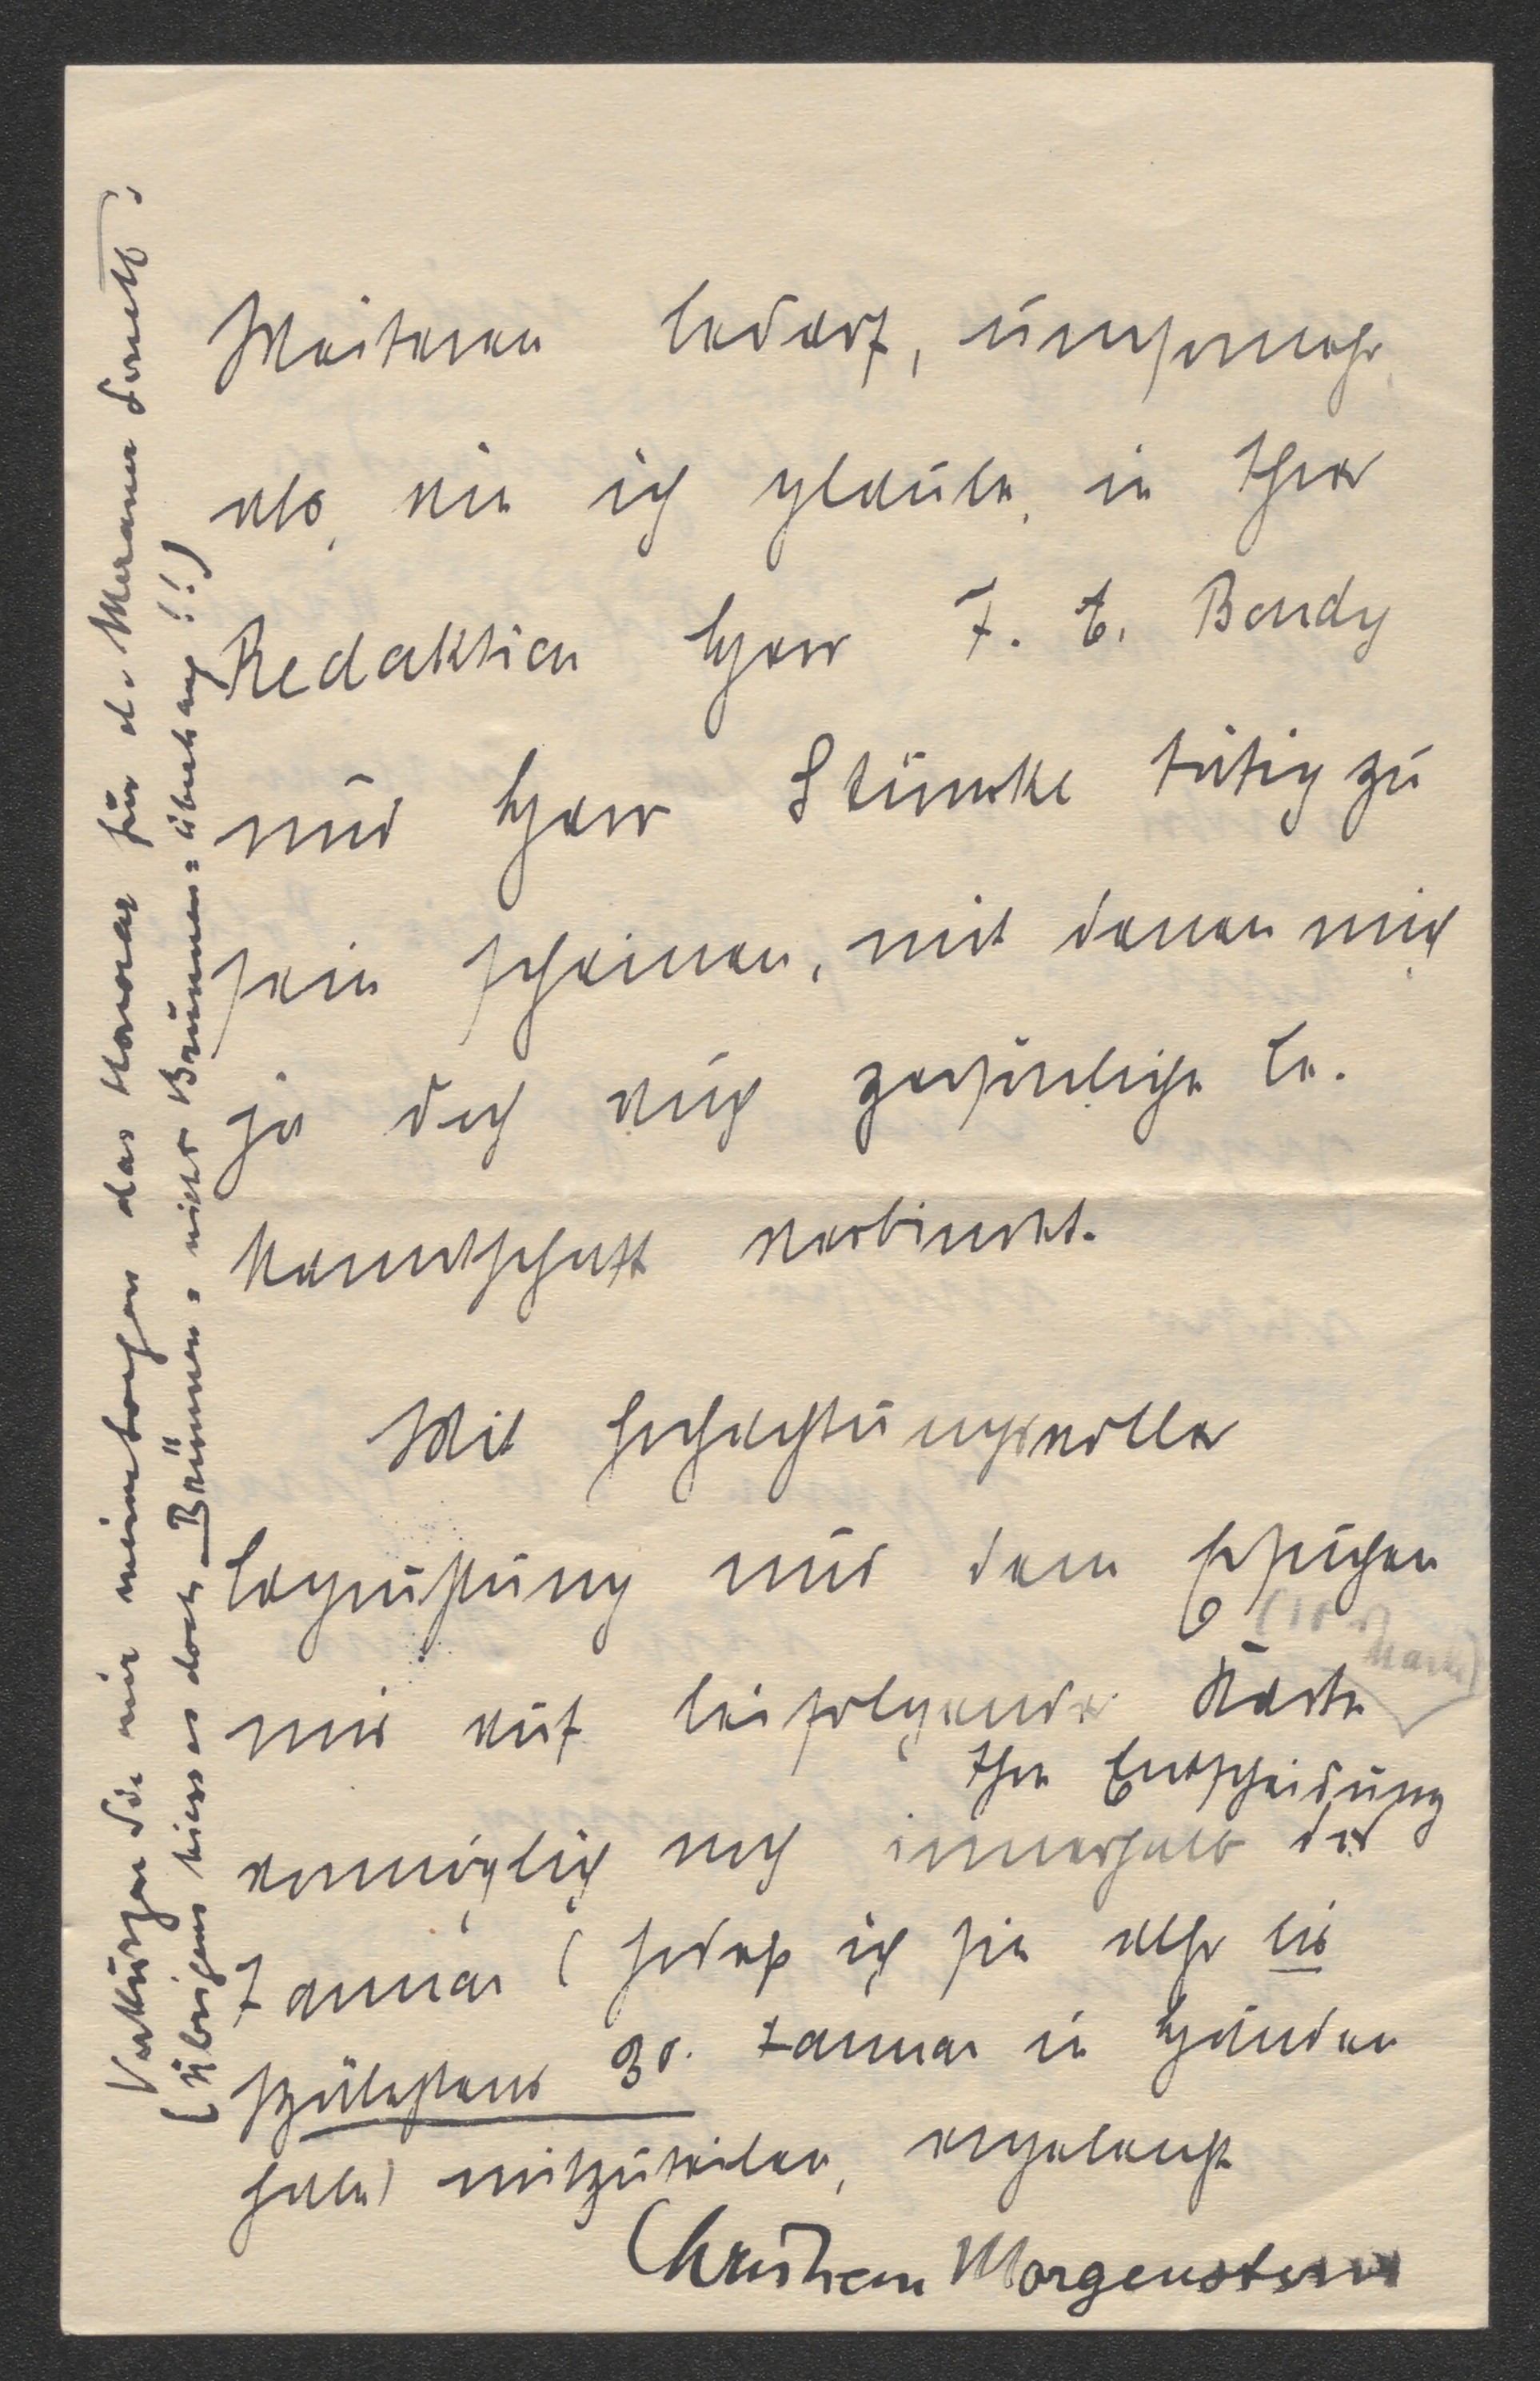 Weiteren bedarf, umsomehr,
als, wie ich glaube, in Ihrer
Redaktion Herr F. E. Bondy
und Herr Stümcke tätig zu
sein scheinen, mit denen mich
ja doch auch persönliche Be-
kanntschaft verbindet.
Mit hochachtungsvoller
Begrüßung und dem Ersuchen
mir auf beifolgender Karte
Ihre Entscheidung
womöglich noch innerhalb des
Januar (sodaß ich sie also bis
spätestens 30. Januar in Händen
habe) mitzuteilen, ergebenst
Christian Morgenstern
Verkürzen Sie mir meinetwegen das Honorar für d. Meraner Sonett.
(Übrigens hiess es doch Brünnen, nicht Brunnen = überhang!!)